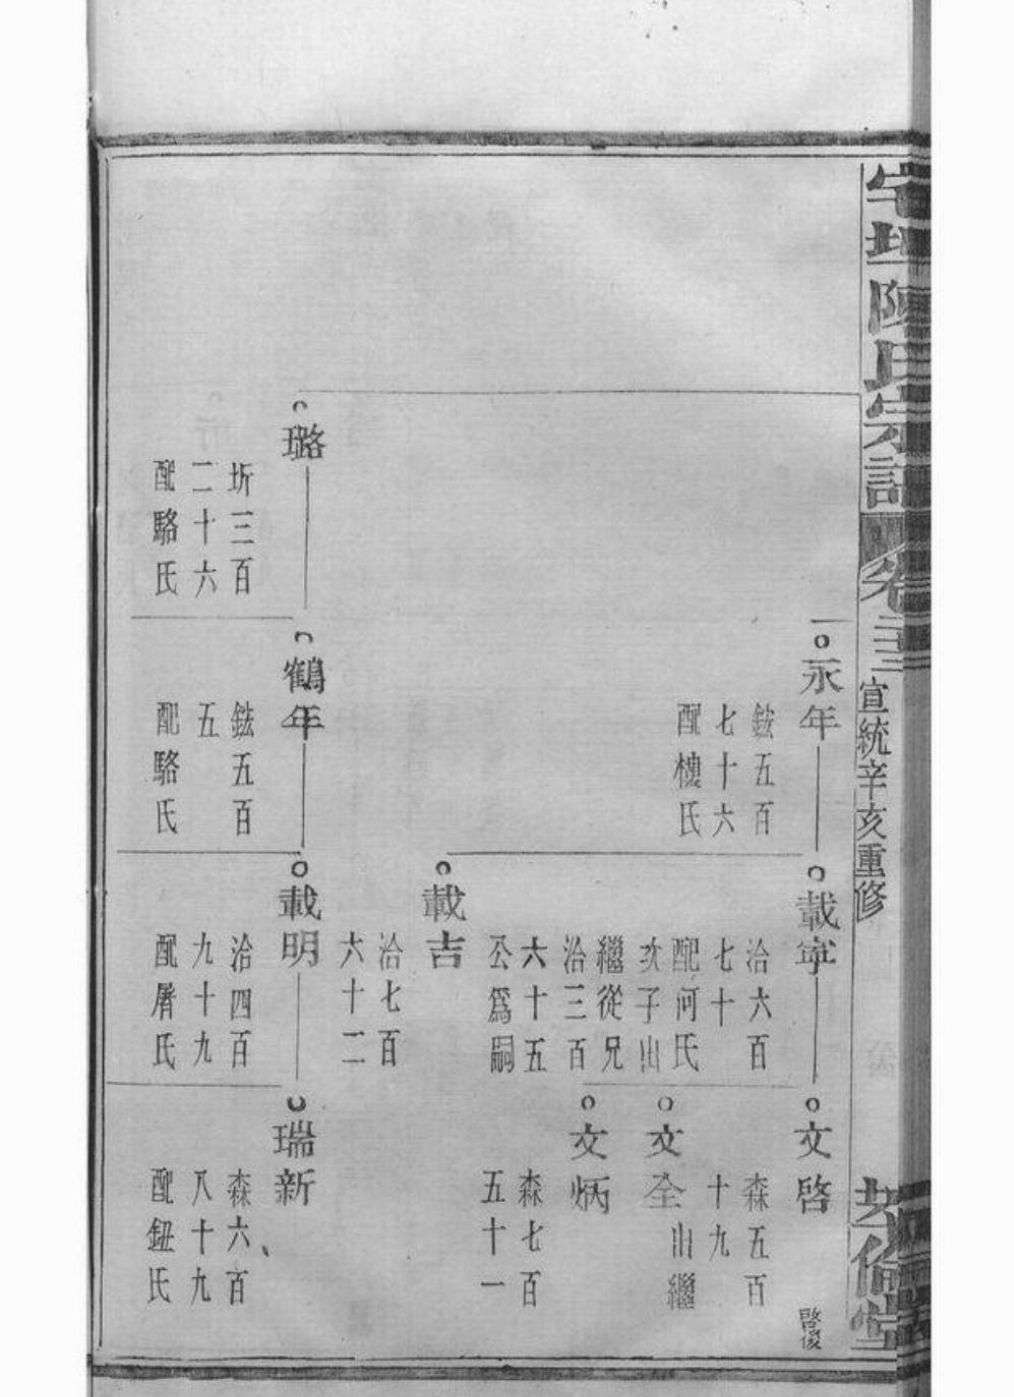 宅坦陳氏宗譜 卷二十三 宣統辛亥重修
永年
鉉五百
七十六
配樓氏
載寧
洽六百
七十
配何氏
次子出
繼從兄
洽三百
六十五
公爲嗣
文啓
森五百
十九
啓後
文全
出繼
文炳
森七百
五十一
載吉
洽七百
六十二
璐
圻三百
二十六
配駱氏
鶴年
五百
五
配駱氏
載明
洽四百
九十九
配屠氏
瑞新
森六百
八十九
配鈕氏